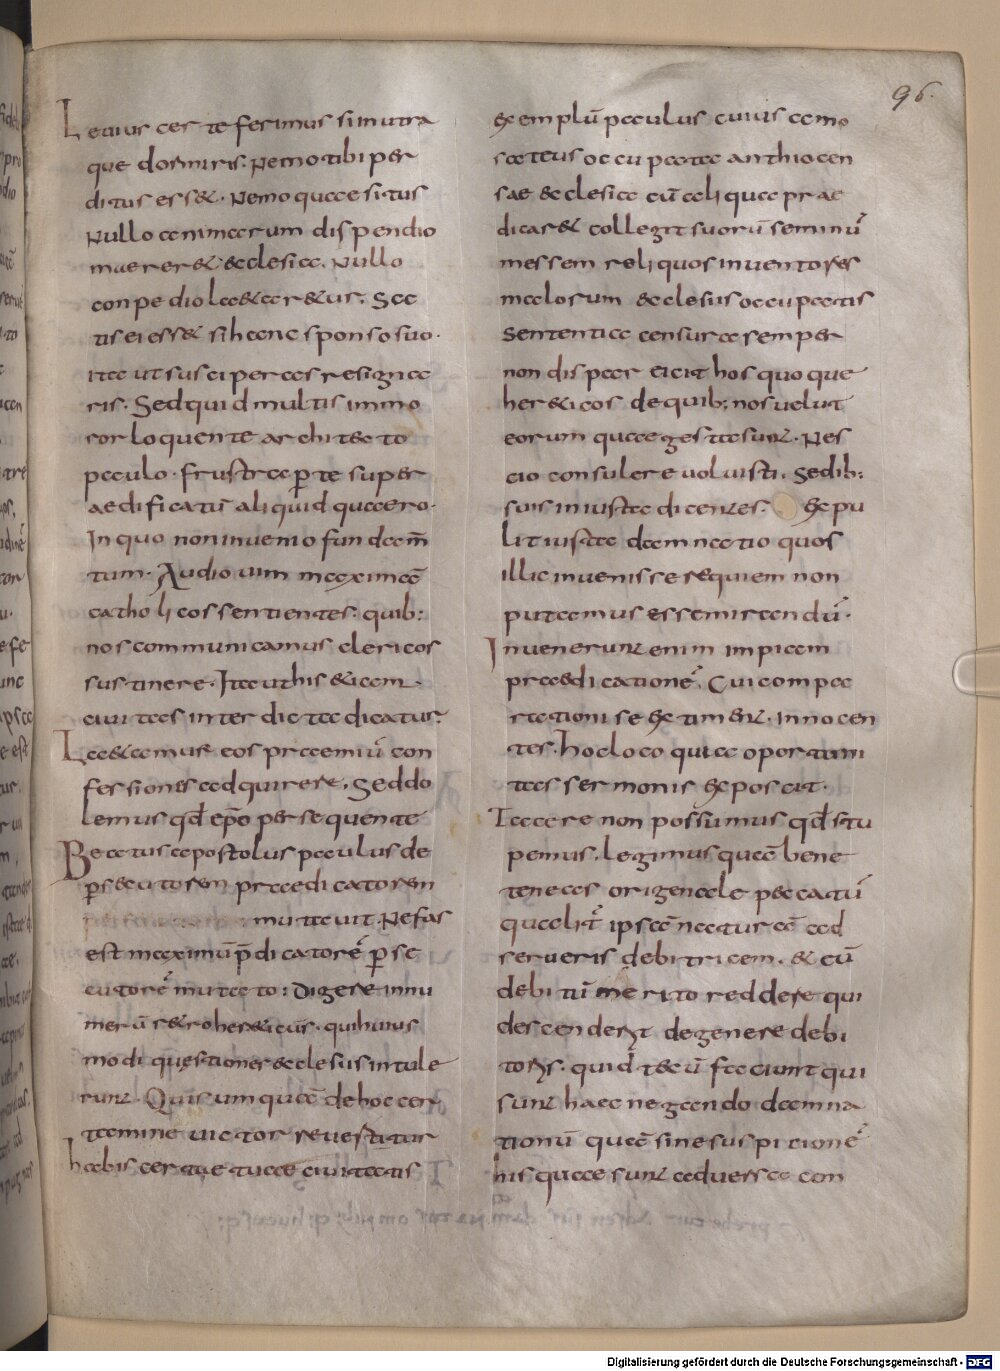 96.
Leuius certe ferimus si in utra
que dormiris. Nemo tibi per
ditus esset. Nemo quaesitus
Nullo animarum dispendio
maereret ecclesia. Nullo
conpedio laetaretur. Sa
tis ei esset si hanc sponso suo.
ita ut susciperas resigna
ris. Sed quid multis immo
ror loquente architecto
paulo. frustra a te super
aedificatū aliquid quaero.
In quo non inuenio fundam̄
tum. Audio uim maximā
catholicos sentientes. quib:
nos communicamus clericos
sustinere. Ita ut his etiam
ciuitas interdicta dicatur.
Laetamur eos praemiū con
fessionis adquirere. Sed do
lemus qđ epō persequente
Beatus apostolus paulus de
ꝑsecutorem praedicatorem
mutauit. Nefas
est maximū p̄dicatorē ꝑse
cutorē mutato: Digere innu
merū retro hereticus. qui huius
modi questiones ecclesiis intule
runt. Quis umquā de hoc cer
tamine uictor reuertitur
habis certae tuae ciuitatis
exemplū paulus cuius samo
sateus occupata anthiocen
sae ecclesia cū celi quae prae
dicaret collegit suorū seminū
messem reliquos inuentores
malorum ecclesiis occupatis
Sententia censura semper
non dispar eicit hos quoque
hereticos de quib: nos uelut
eorum quae gesta sunt. Nes
cio consulere uoluisti. Sed ib:
suis in iusta dicentes. Expu
lit iusta damnatio quos
illic inuenisse requiem non
putamus esse mirandū.
Inuenerunt enim impiam
praedicationē. Cui compa
rationi se extiment. innocen
tes. Hoc loco quia oportuni
tas sermonis exposcit.
Tacere non possumus qđ stu
pemus. Legimus quā bene
teneas originale peccatū
qualit̄ ipsā naturā ad
serueris debitricem. et cū
debitū merito reddere qui
descenderit de genere debi
toris. quid tecū faciunt qui
sunt haec negando damna
tionū quā sine suspicionē
his quae sunt aduersa con